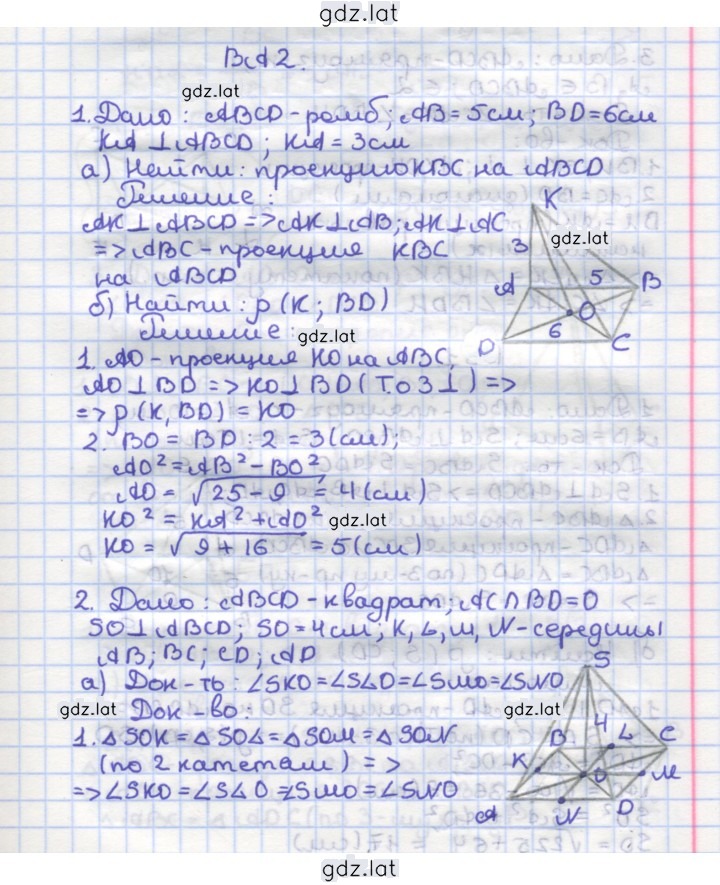 gdz.lat
ВА2.
gdz.lat
1. Дано: ABCD-ромб; AB=5см; BD=6см
KA⊥ABCD; KA=3см
а) Найти: проекцию KBC на ABCD
Решение:
AK⊥ABCD=>AK⊥AB; AK⊥AC
=>ABC-проекция KBC
на ABCD
б) Найти: ρ(K; BD)
Решение:
K
gdz.lat
3
A
5
B
O
6
D
C
gdz.lat
1. AO-проекция KO на ABC,
AO⊥BD=>KO⊥BD(ТоЗ⊥)=>
=>ρ(K,BD)=KO
2. BO=BD:2=3(см);
AO²=AB²-BO²,
AO=√25-9=4(см)
KO²=KA²+AO²
gdz.lat
KO=√9+16=5(см)
2. Дано: ABCD-квадрат; AC∩BD=O
SO⊥ABCD; SO=4см; K, L, M, N-середины
AB; BC; CD; AD
а) Док-ть: ∠SKO=∠SLO=∠SMO=∠SNO
gdz.lat
Док-во:
1. △SOK=△SOL=△SOM=△SON
(по 2 катетам)=>
=>∠SKO=∠SLO=∠SMO=∠SNO
S
gdz.lat
4
B
L
C
K
O
M
A
N
D
gdz.lat